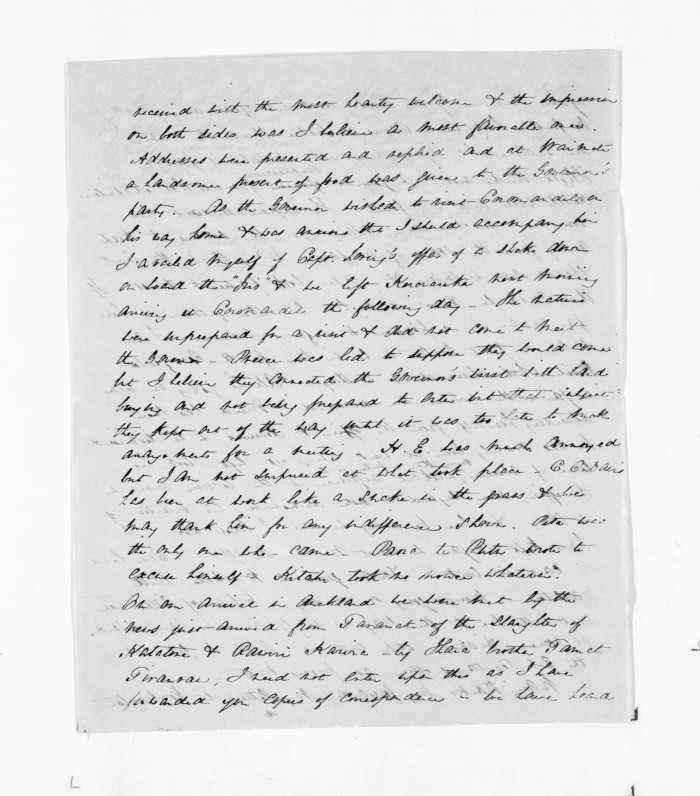 received with the most hearty welcome & the impression
on both sides was I believe a most favorable one.
Addresses were presented and replied and at Waimate
a handsome present of food was given to the Governor's
party. As the Governor wished to visit Coromandel on
his way home & was anxious that I should accompany him
I availed myself of Capt. Loring's offer of a shake down
on board the "Iris" & we left Kororareka next morning
arriving at Coromandel the following day - The natives
were unprepared for a visit & did not come to meet
the Governor - Preece was led to suppose they would come
but I believe they connected the Governor's visit with land
buying and not being prepared to enter upon that subject
they kept out of the way until it was too late to make
arrangements for a meeting - H. E. was much annoyed
but I am not surprised at what took place - C. O. Davis
has been at work like a snake in the grass & we
may thank him for any indifference shown. Pita was
the only one who came. Paora te Putu wrote to
excuse himself & Kitahi took no notice whatever.
On our arrival in Auckland we were met by the
news just arrived from Taranaki of the slaughter of
Katatore & Rawiri Karira - by Ihaia brother Tamati
Tiraurau, I need not enter upon this as I have
forwarded you copies of correspondence - we have heard